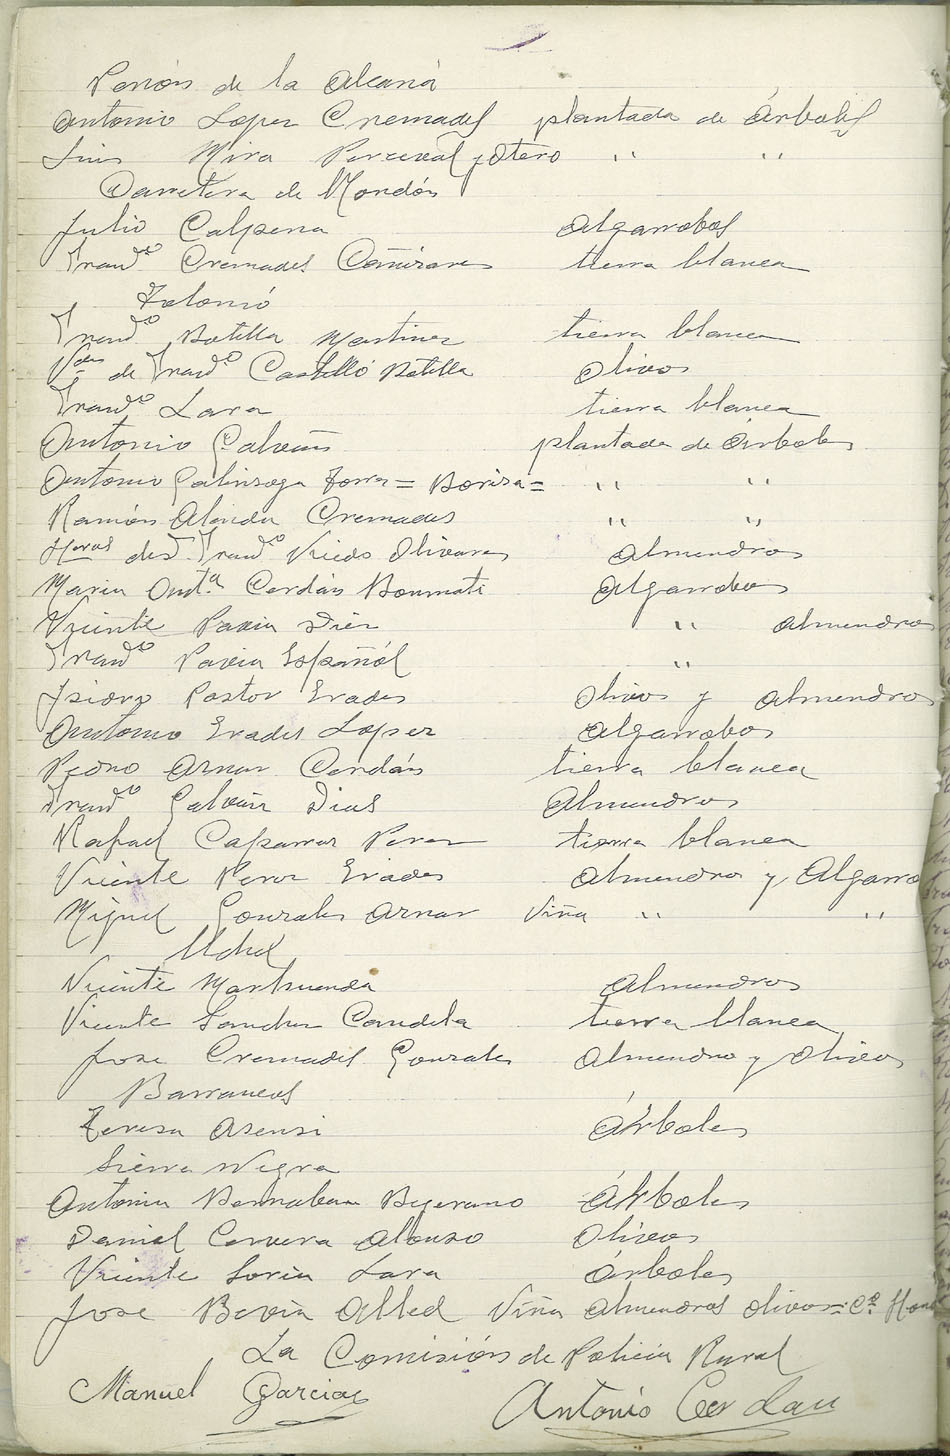 de la Alcaná
Antonio Lopez Cremades plantada de Árboles
Luis Mira Perceval y Otero " "
Carretera de Hondón
Julio Calpena algarrobos
Franco Cremades Cañizares tierra blanca
Franco Botella Martinez tierra blanca
Vda de Franco Castelló Botella Olivos
Franco Lara tierra blanca
Antonio Galvañ plantada de árboles
Antonio Galinsoga = = " "
Ramón Alenda Cremades " "
Heros de Franco Olivares Almendros
Maria Anta Cerdán Bonmati Algarrobos
Vicente Pavia Diez " almendros
Franco Pavia Español "
Isidro Pastor Erades Olivos y almendros
Antonio Erades Lopez algarrobos
Pedro Aznar Cerdán tierra blanca
Franco Galvañ Dias Almendros
Rafael Caparros Perez tierra blanca
Vicente Perez Erades Almendros y Algarro
Miguel Gonzales Aznar Viña " "
Uchel
Vicente Marhuenda Almendros
Vicente Sanchez Candela tierra blanca
Jose Cremades Gonzales Almendros y Olivos
Barrancos
Teresa Asensi Árboles
Sierra Negra
Antonia Bernabeu Bejerano Árboles
Daniel Cervera Alonso Olivos
Vicente Soria Lara árboles
Jose Bevia Alted Viña Almendros olivos =
La Comisión de Policia Rural
Manuel Garcias Antonio Cerdán